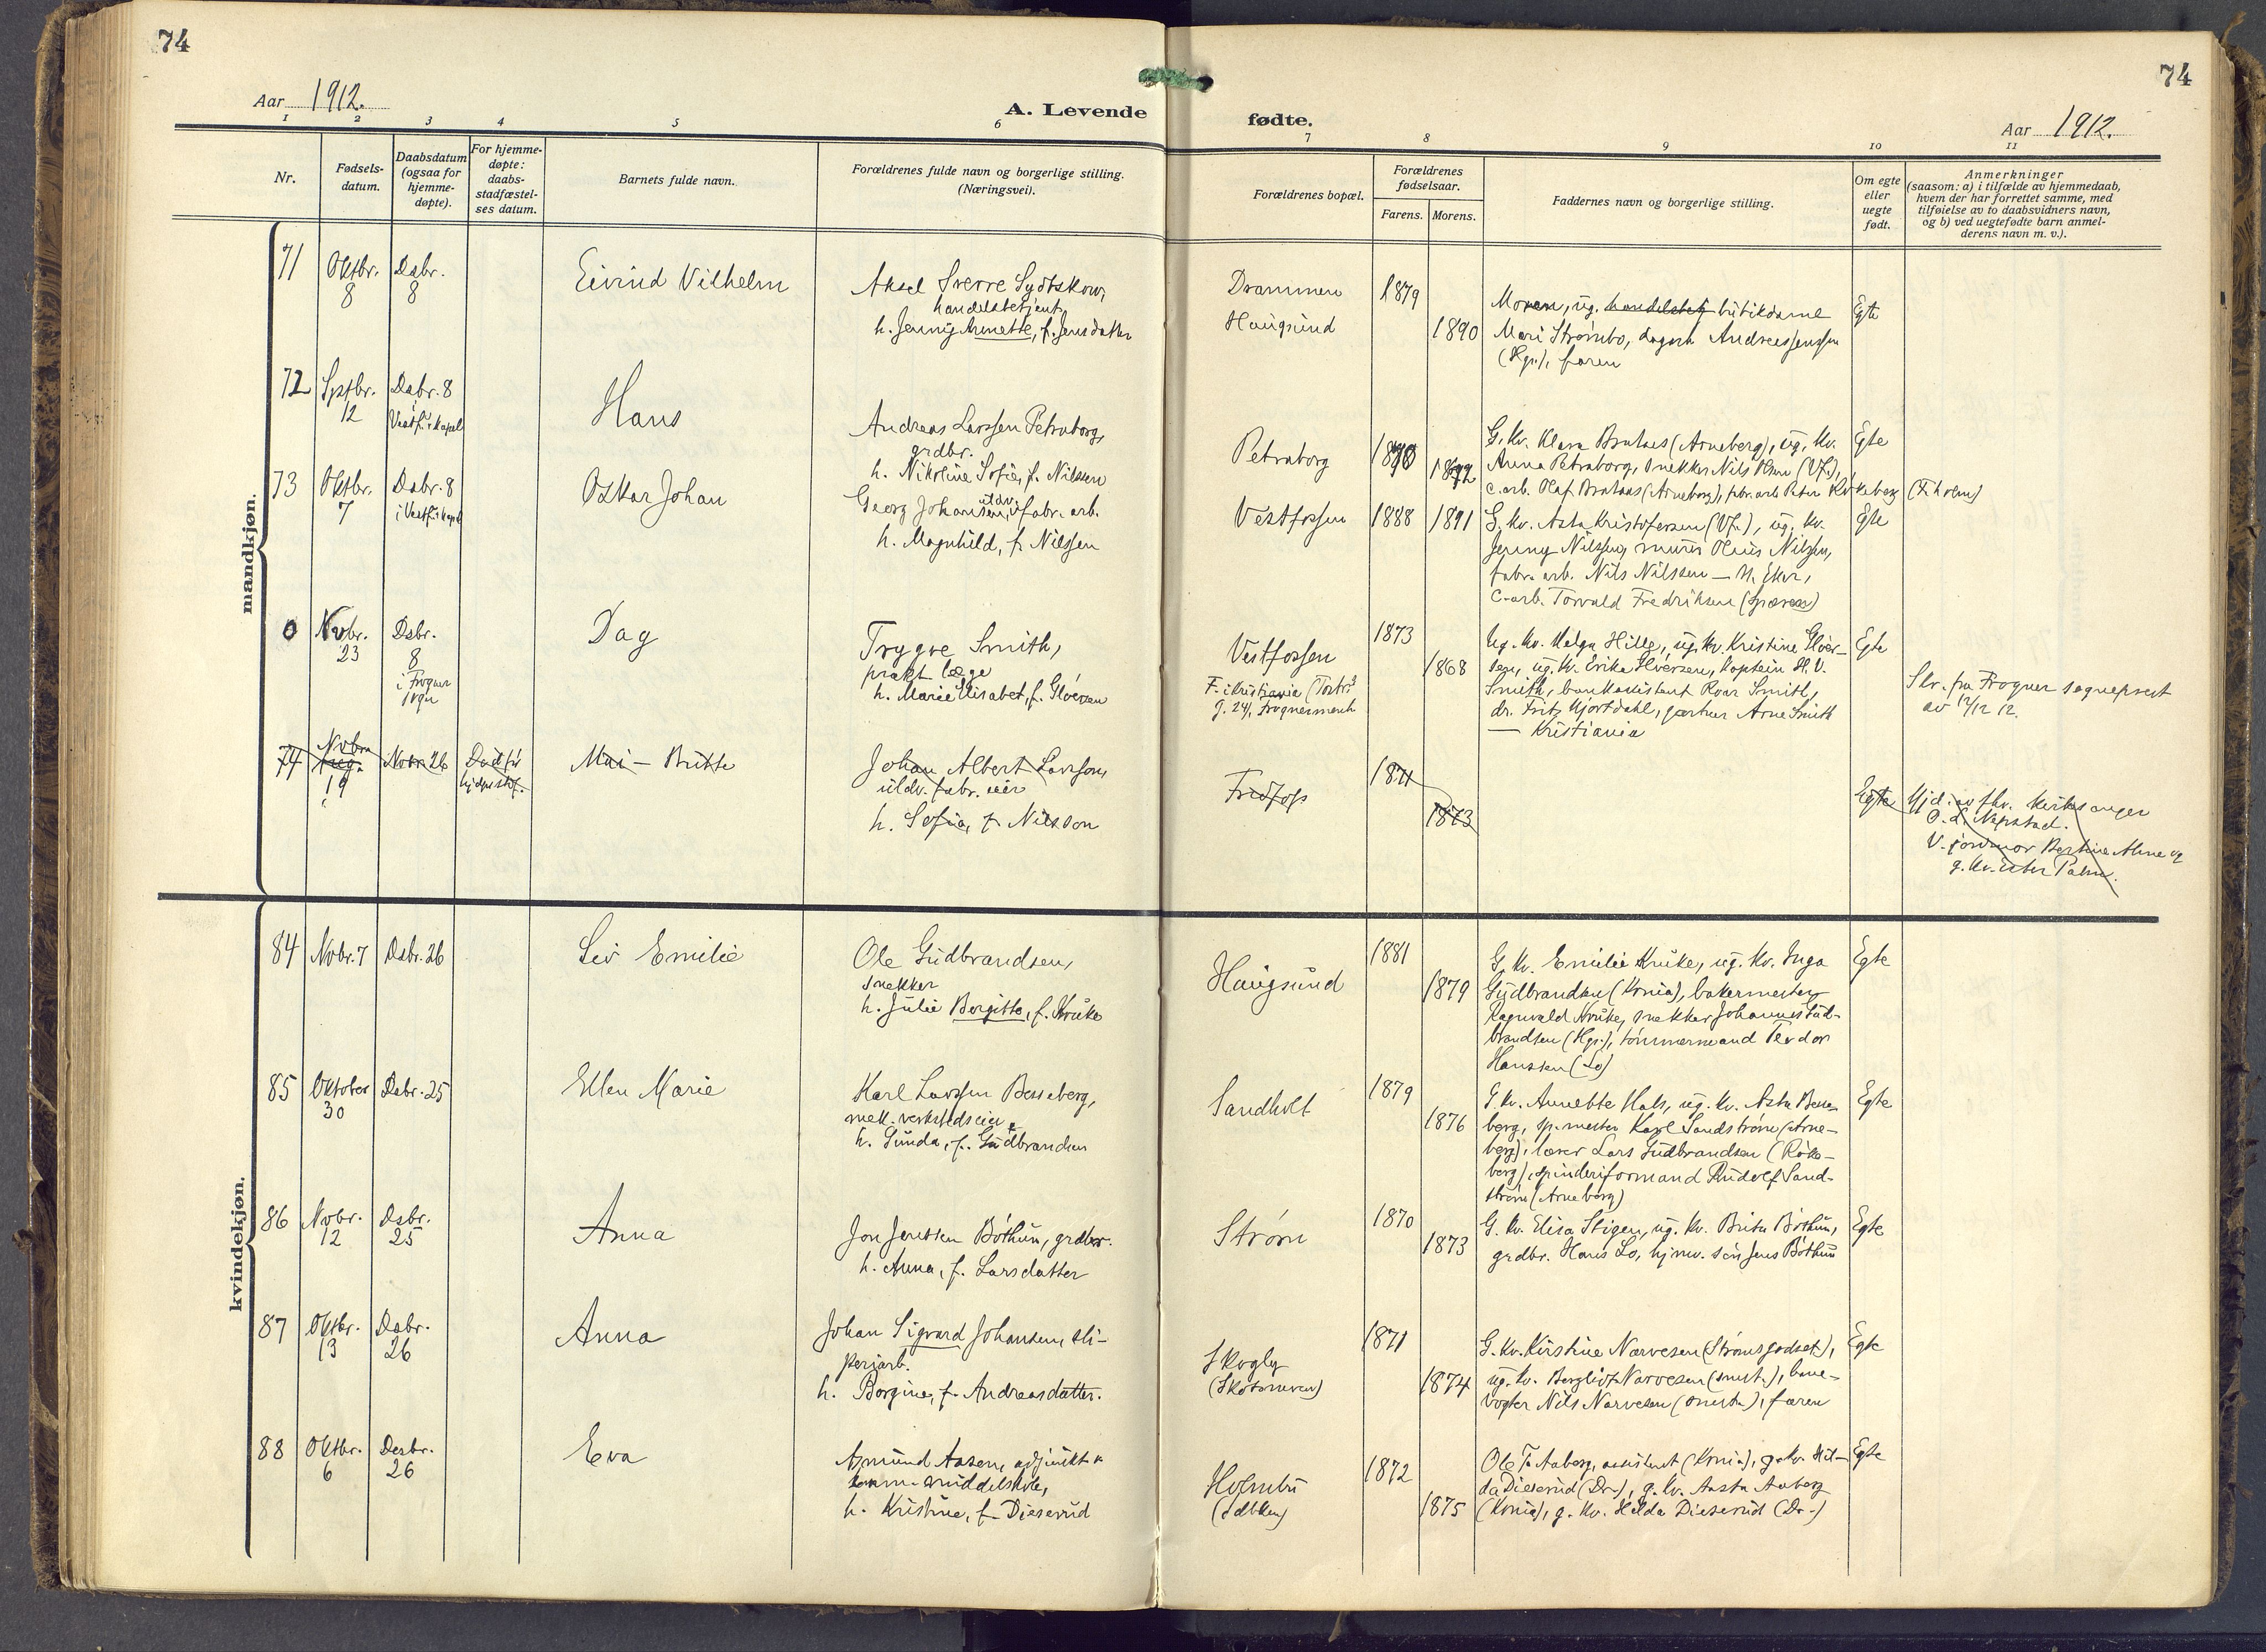 74
74
Aar 1912.
A. Levende fødte.
Aar 1912.
1 2 3 4 5 6 7 8 9 10 11
Nr.
Fødsels-
datum.
Daabsdatum
(ogsaa for
hjemme-
døpte).
For hjemme-
døpte:
daabs-
stadfæstel-
ses datum.
Barnets fulde navn.
Forældrenes fulde navn og borgerlige stilling.
(Næringsvei).
Forældrenes bopæl.
Forældrenes
fødselsaar.
Farens. Morens.
Faddernes navn og borgerlige stilling.
Om egte
eller
uegte
født.
Anmerkninger
(saasom: a) i tilfælde av hjemmedaab,
hvem der har forrettet samme, med
tilføielse av to daabsvidners navn,
og b) ved uegtefødte barn anmel-
derens navn m. v.).
mandkjøn.
71
Oktbr.
8
Dsbr.
8
Eivind Vilhelm
Aksel Sverre
handelsbetjent,
h. Jenny Annette, f. Jensdatter
Drammen
Haugsund
1879
1890
Moren, ug. handelsbetj butikdame
Mari Strømbo, Andreas Jenssen
(Hgs.), faren
Egte
72
Septbr.
12
Dsbr. 8
i
Vestf. kapel
Hans
Andreas Larssen Petraborg,
grdbr.
h. Nikoline Sofie, f. Nilssen
Petraborg
G. kv. Klara Brataas (Arneberg), ug. kv.
Anna Petraborg, snekker Nils Olsen (Vf.),
c.arb. Olaf Brataas (Arneberg), fabr. arb. Peter
Egte
73
Oktbr.
7
Dsbr. 8
i Vestf. kapel
Oskar Johan
Georg Johansen, utdv. fabr. arb.
h. Magnhild, f. Nilssen
Vestfossen
1888
1891
G. kv. Asta Kristofersen (Vf.), ug. kv.
Jenny Nilssen, murer Olaus Nilsen,
fabr. arb. Nils Nilssen — N. Eker,
c-arb. Torvald Fredriksen
Egte
0
Nvbr.
23
Dsbr.
8
i Frogner
sogn
Dag
Trygve Smith,
prakt. læge
h. Marie Elisabet, f. Gløersen
Vestfossen
F. i Kristiania
g. 24, Frognermenh
1873
1868
Ug. kv. Helga Hille, ug. kv. Kristine Gløer-
sen, ug. kv. Erika Gløersen, kaptein H. V.
Smith, bankassistent Roar Smith,
dr. Fritz Hjortdahl, gartner Arne Smith
— Kristiania
Egte
Skr. fra Frogner sogneprest
av 12/12 12.
74
Nvbr.
19
Novbr 26
Død før
hjdpsstf.
Mai - Britte
Johan Albert Larsson,
utdv. fabr. eier
h. Sofia, f. Nilsson
Fredfoss
1871
1873
Egte
Hjd. av fhv. kirkesanger
V. jordmor Bertine og
g. kv. Ester Palm.
kvindekjøn.
84
Nvbr. 7
Dsbr. 26
Liv Emilie
Ole Gudbrandsen,
snekker
h. Julie Bergitte, f. Kruke
Haugsund
1881
1879
G. kv. Emilie Kruke, ug. kv. Inga
Gudbrandsen (Krnia), bakermester
Ragnvald Kruke, snekker Johannes Gud-
brandsen (Hgs.), tømmermand Teodor
Hanssen (Lo)
Egte
85
Oktober
30
Dsbr. 25
Ellen Marie
Karl Larssen Besseberg,
mek. verkstedseier
h. Gunda, f. Gudbrandsen
Sandholt
1879
1876
G. kv. Annette Hals, ug. kv. Asta Besse-
berg, sp. mester Karl Sandstrøm (Arne-
berg), lærer Lars Gudbrandsen (Røke-
berg), spinderiformand Rudolf Sand-
strøm (Arneberg)
Egte
86
Nvbr.
12
Dsbr.
25
Anna
Jon Jenssen Bøthun, grdbr.
h. Anna, f. Larsdatter
Strøm
1870
1873
G. kv. Elisa Stigen, ug. kv. Brita Bøthun,
grdbr. Hans Lo, hjmv. søn Jens Bøthun
Egte
87
Oktbr.
13
Dsbr.
26
Anna
Johan Sigvard Johansen, sli-
periarb.
h. Borgine, f. Andreasdatter.
Skogly
1871
1874
G. kv. Kirstine Narvesen (Strømsgodset),
ug. kv. Bergliot Narvesen (smst.), bane-
vogter Nils Narvesen (smst.), faren
Egte
88
Oktbr.
6
Desbr.
26
Eva
Amund Aasen, adjunkt v.
komm. middelskole,
h. Kristine, f. Dieserud
Holmbu
1872
1875
Ole T. Aaberg, assistent (Krnia), g. kv. Hil-
da Dieserud (Dr.), g. kv. Aasta Aaberg
(Krnia), g. kv. Hilda Dieserud (Dr.)
Egte